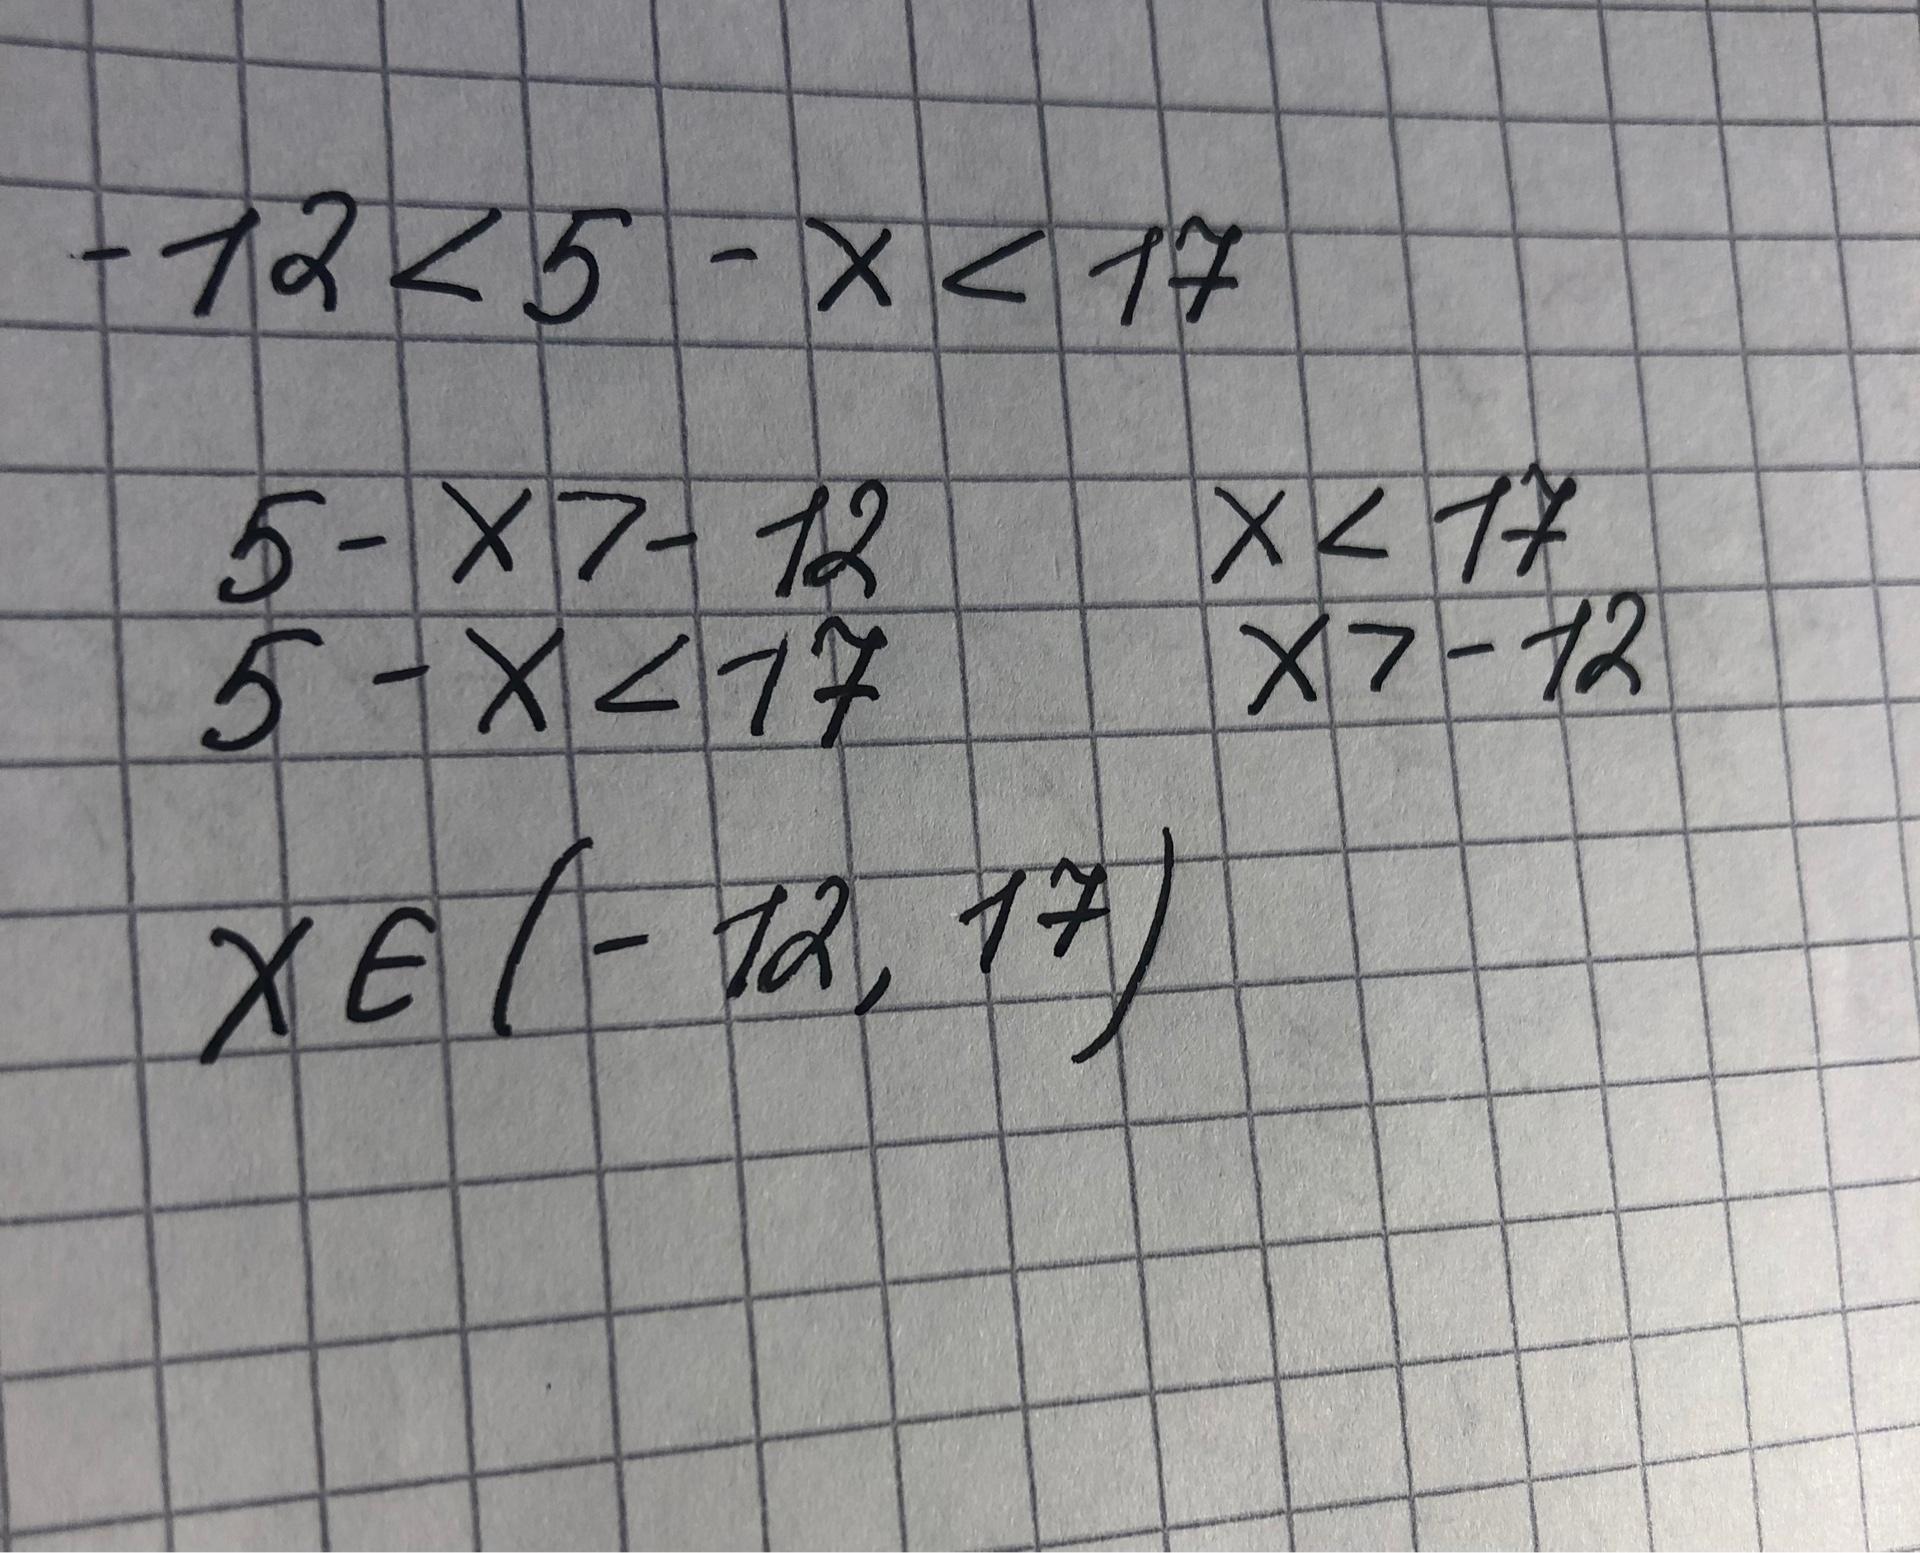 -12 < 5 - x < 17
5 - x > - 12 x < 17
5 - x < 17 x > - 12
x ∈ (- 12, 17)